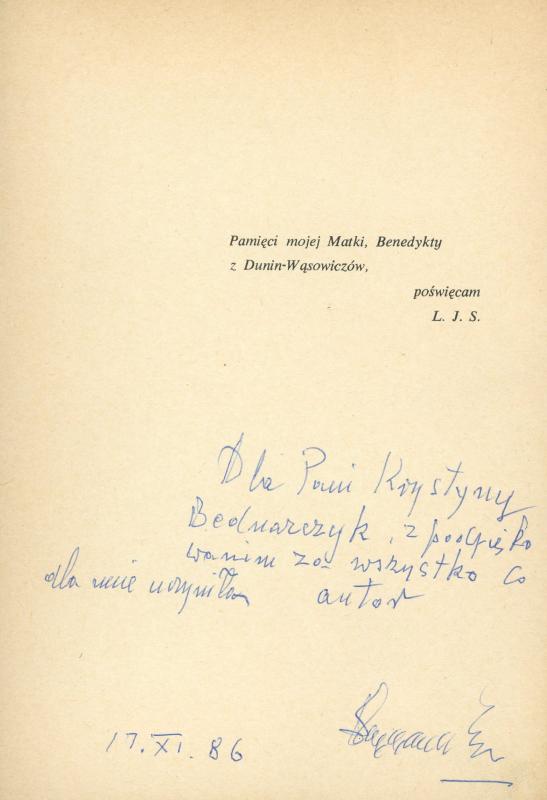 Pamięci mojej Matki, Benedykty
z Dunin-Wąsowiczów,
poświęcam
L. J. S.
Dla Pani Krystyny
Bednarczyk, z podzięko
waniem za wszystko co
dla mnie uczyniła autor
17. XI. 86